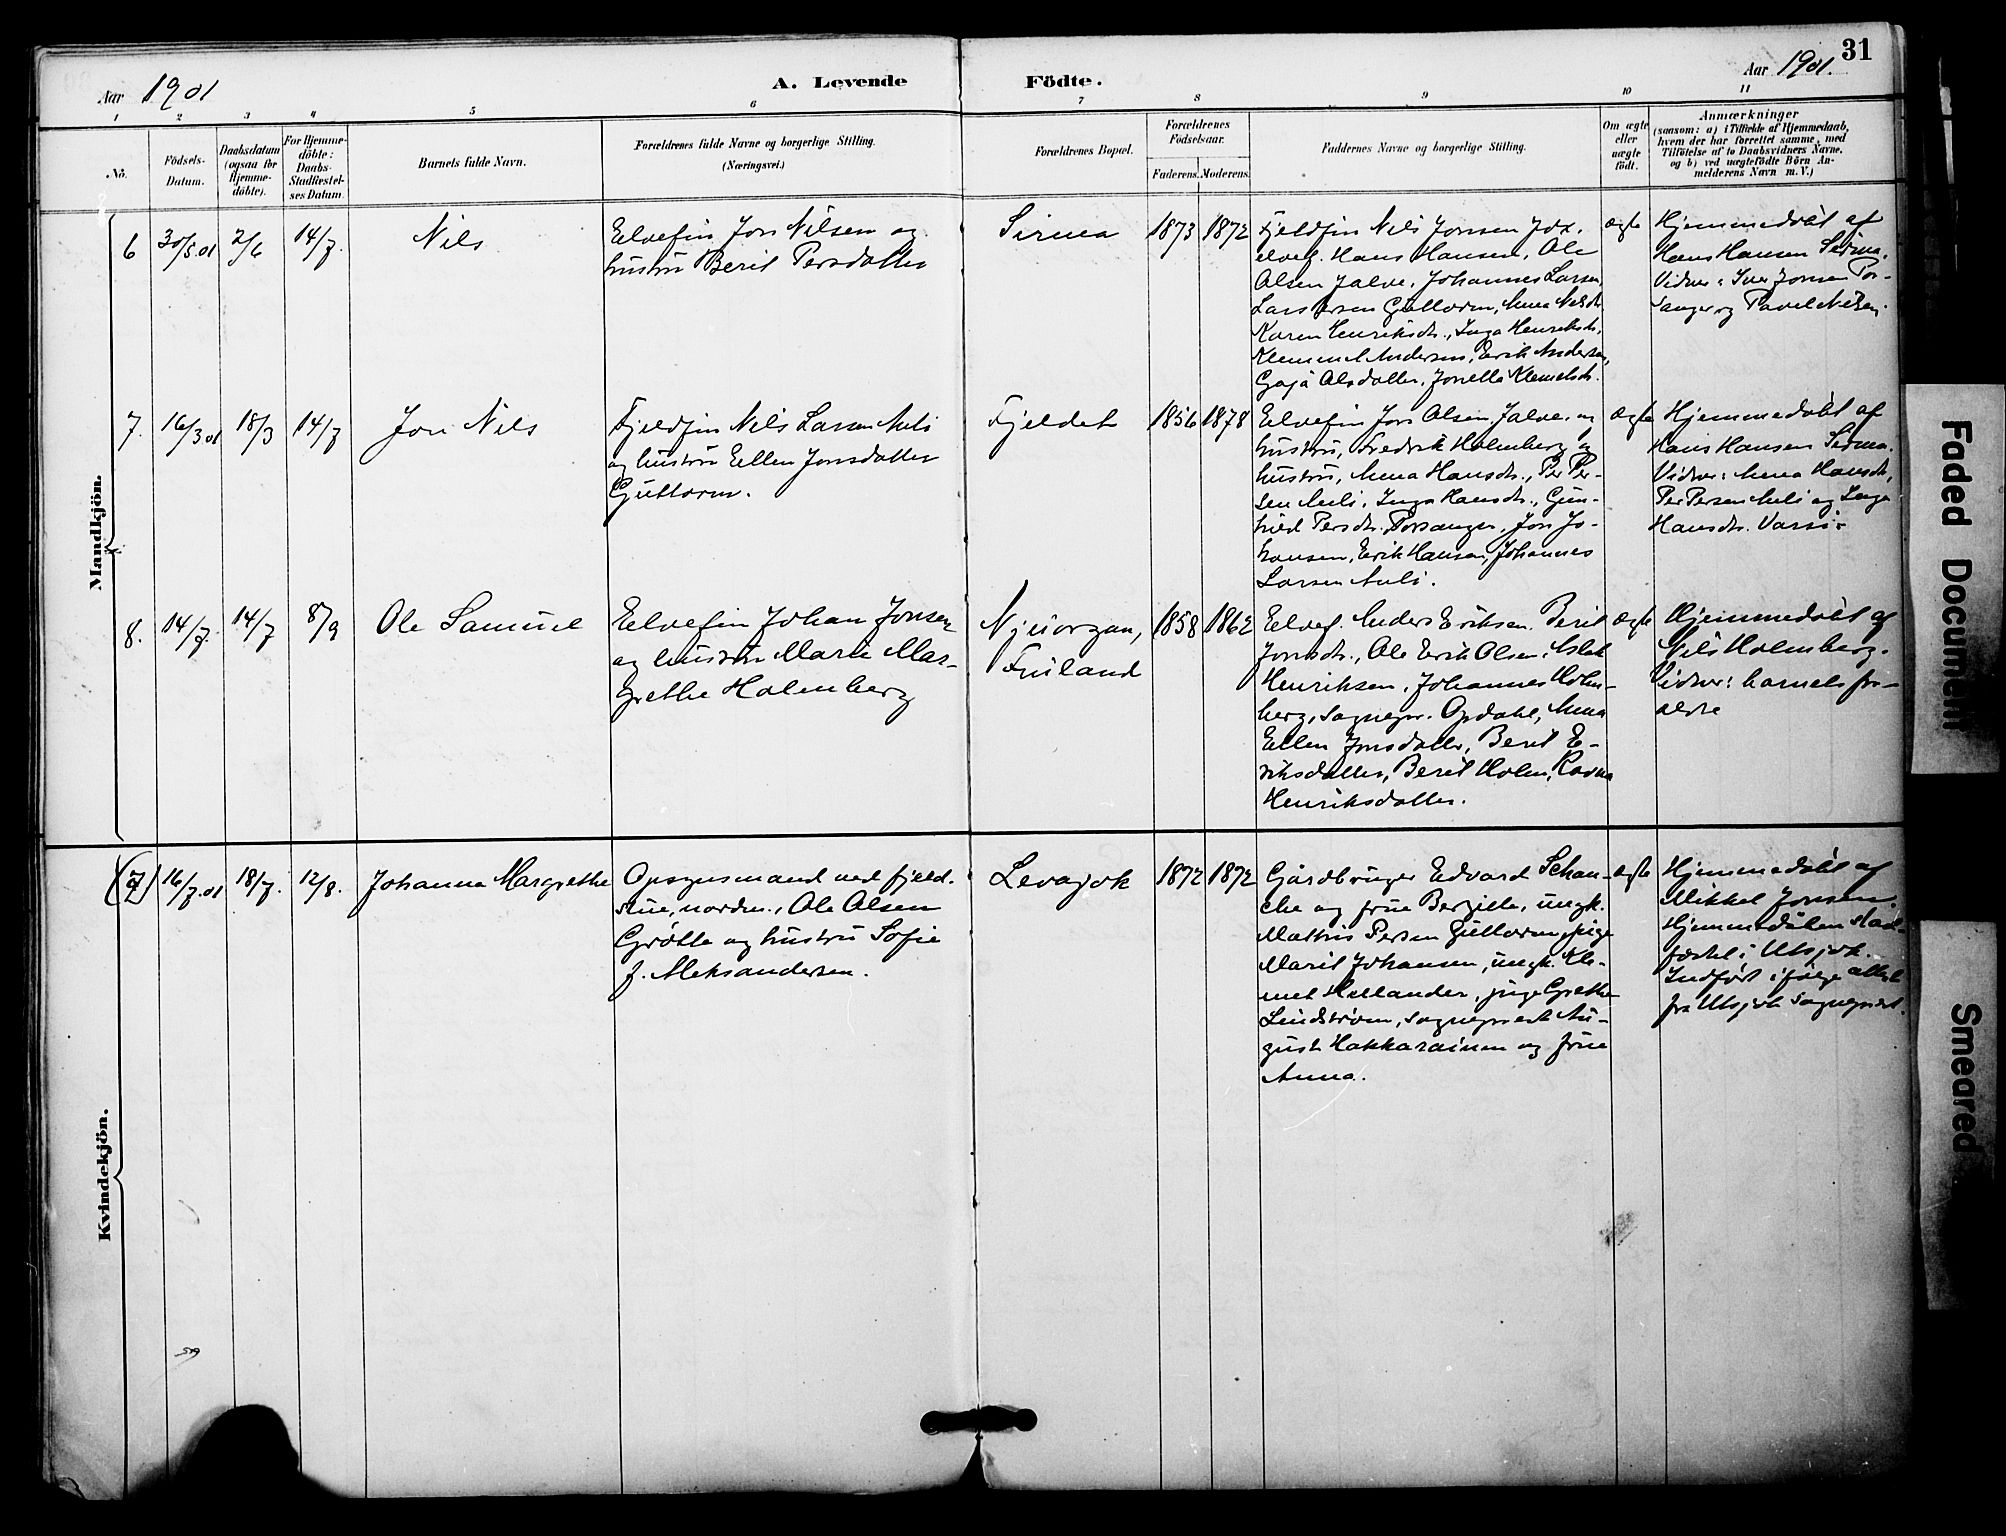 31
Aar 1901
A. Levende Födte.
Aar 1901.
1 2 3 4 5 6 7 8 9 10 11
No.
Födsels-
Datum.
Daabsdatum
(ogsaa for
Hjemme-
döbte).
For Hjemme-
döbte:
Daabs-
Stadfæstel-
ses Datum.
Barnets fulde Navn.
Forældrenes fulde Navne og borgerlige Stilling.
(Næringsvei.)
Forældrenes Bopæl.
Forældrenes
Födselsaar.
Faderens. Moderens.
Faddernes Navne og borgerlige Stilling.
Om ægte
eller
uægte
födt.
Anmærkninger
(saasom: a) i Tilfælde af Hjemmedaab,
hvem der har forrettet samme, med
Tilföielse af to Daabsvidners Navne,
og b) ved uægtefödte Börn An-
melderens Navn m. V.)
Mandkjön.
6
30/5.01
2/6
14/7.
Nils
Elvefin Jon Nilsen og
hustru Berit Persdatter
Sirma
1873
1872
Fjeldfin Nils Jonsen
elvef. Hans Hansen, Ole
Olsen Jalve, Johannes Larsen,
Lars Larsen Guttorm, Anna Nilsdr.
Karen Henriksdr., Inga Henriksdr.
Klemmet Andersen, Erik Andersen,
Gaja Olsdatter, Jonetta Klemetsdr.
ægte
Hjemmedøbt af
Hans Hansen Sirma.
Vidner: Iver Jonsen Por-
sanger og Pavel Nilsen.
7.
16/3 01
18/3
14/7
Jon Nils
Fjeldfin Nils Larsen Auli
og hustru Ellen Jonsdatter
Guttorm.
Fjeldet
1856
1878
Elvefin Jon Olsen Jalve og
hustru, Fredrik Holmberg og
hustru, Anna Hansdr., Per Per-
sen Auli, Inga Hansdr., Gun-
hild Persdr. Porsanger, Jon Jo-
hansen, Erik Hansen, Johannes
Larsen Auli.
ægte
Hjemmedøbt af
Hans Hansen Sirma.
Vidner: Anna Hansdr,
Per Persen Auli og Inga
Hansdr. Varsi.
8.
14/7.
14/7
8/9
Ole Samuel
Elvefin Johan Jonsen
og hustru Marie Mar-
grethe Holmberg
Njuorgan,
Finland
1858
1862
Elvef. Anders Eriksen. Berit
Jonsdr., Ole Erik Olsen, Aslak
Henriksen, Johannes Holm-
berg, sognepr. Opdahl, Anna
Ellen Jonsdatter, Berit E-
riksdatter, Berit Holm, Ravna
Henriksdatter.
ægte
Hjemmedøbt af
Nils Holmberg.
Vidner: barnets for-
ældre
Kvindekjön.
(7)
16/7.01
18/7.
12/8.
Johanna Margrethe
Opsynsmand ved fjeld-
stue, nordm., Ole Olsen
Grøtte og hustru Sofie
f. Aleksandersen.
Levajok
1872
1872
Gårdbruger Edvard Schan-
che og frue Bergitte, ungk.
Mathis Persen Guttorm, pige
Marit Johansen, ungk. Kle-
met Hellander, pige Grethe
Lindstrøm, sogneprest Au-
gust Hakkarainen og frue
Anna.
ægte
Hjemmedøbt af
Mikkel Jonsen.
Hjemmedåben stad-
fæstet i Utsjok.
Indført ifølge attest
fra Utsjok sogneprest.
Faded Document
Smeared